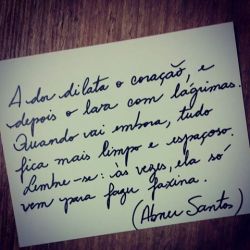 A dor dilata o coração, e
depois o lava com lágrimas.
Quando vai embora, tudo
fica mais limpo e espaçoso.
Lembre-se: às vezes, ela só
vem para fazer faxina.
(Abreu Santos)